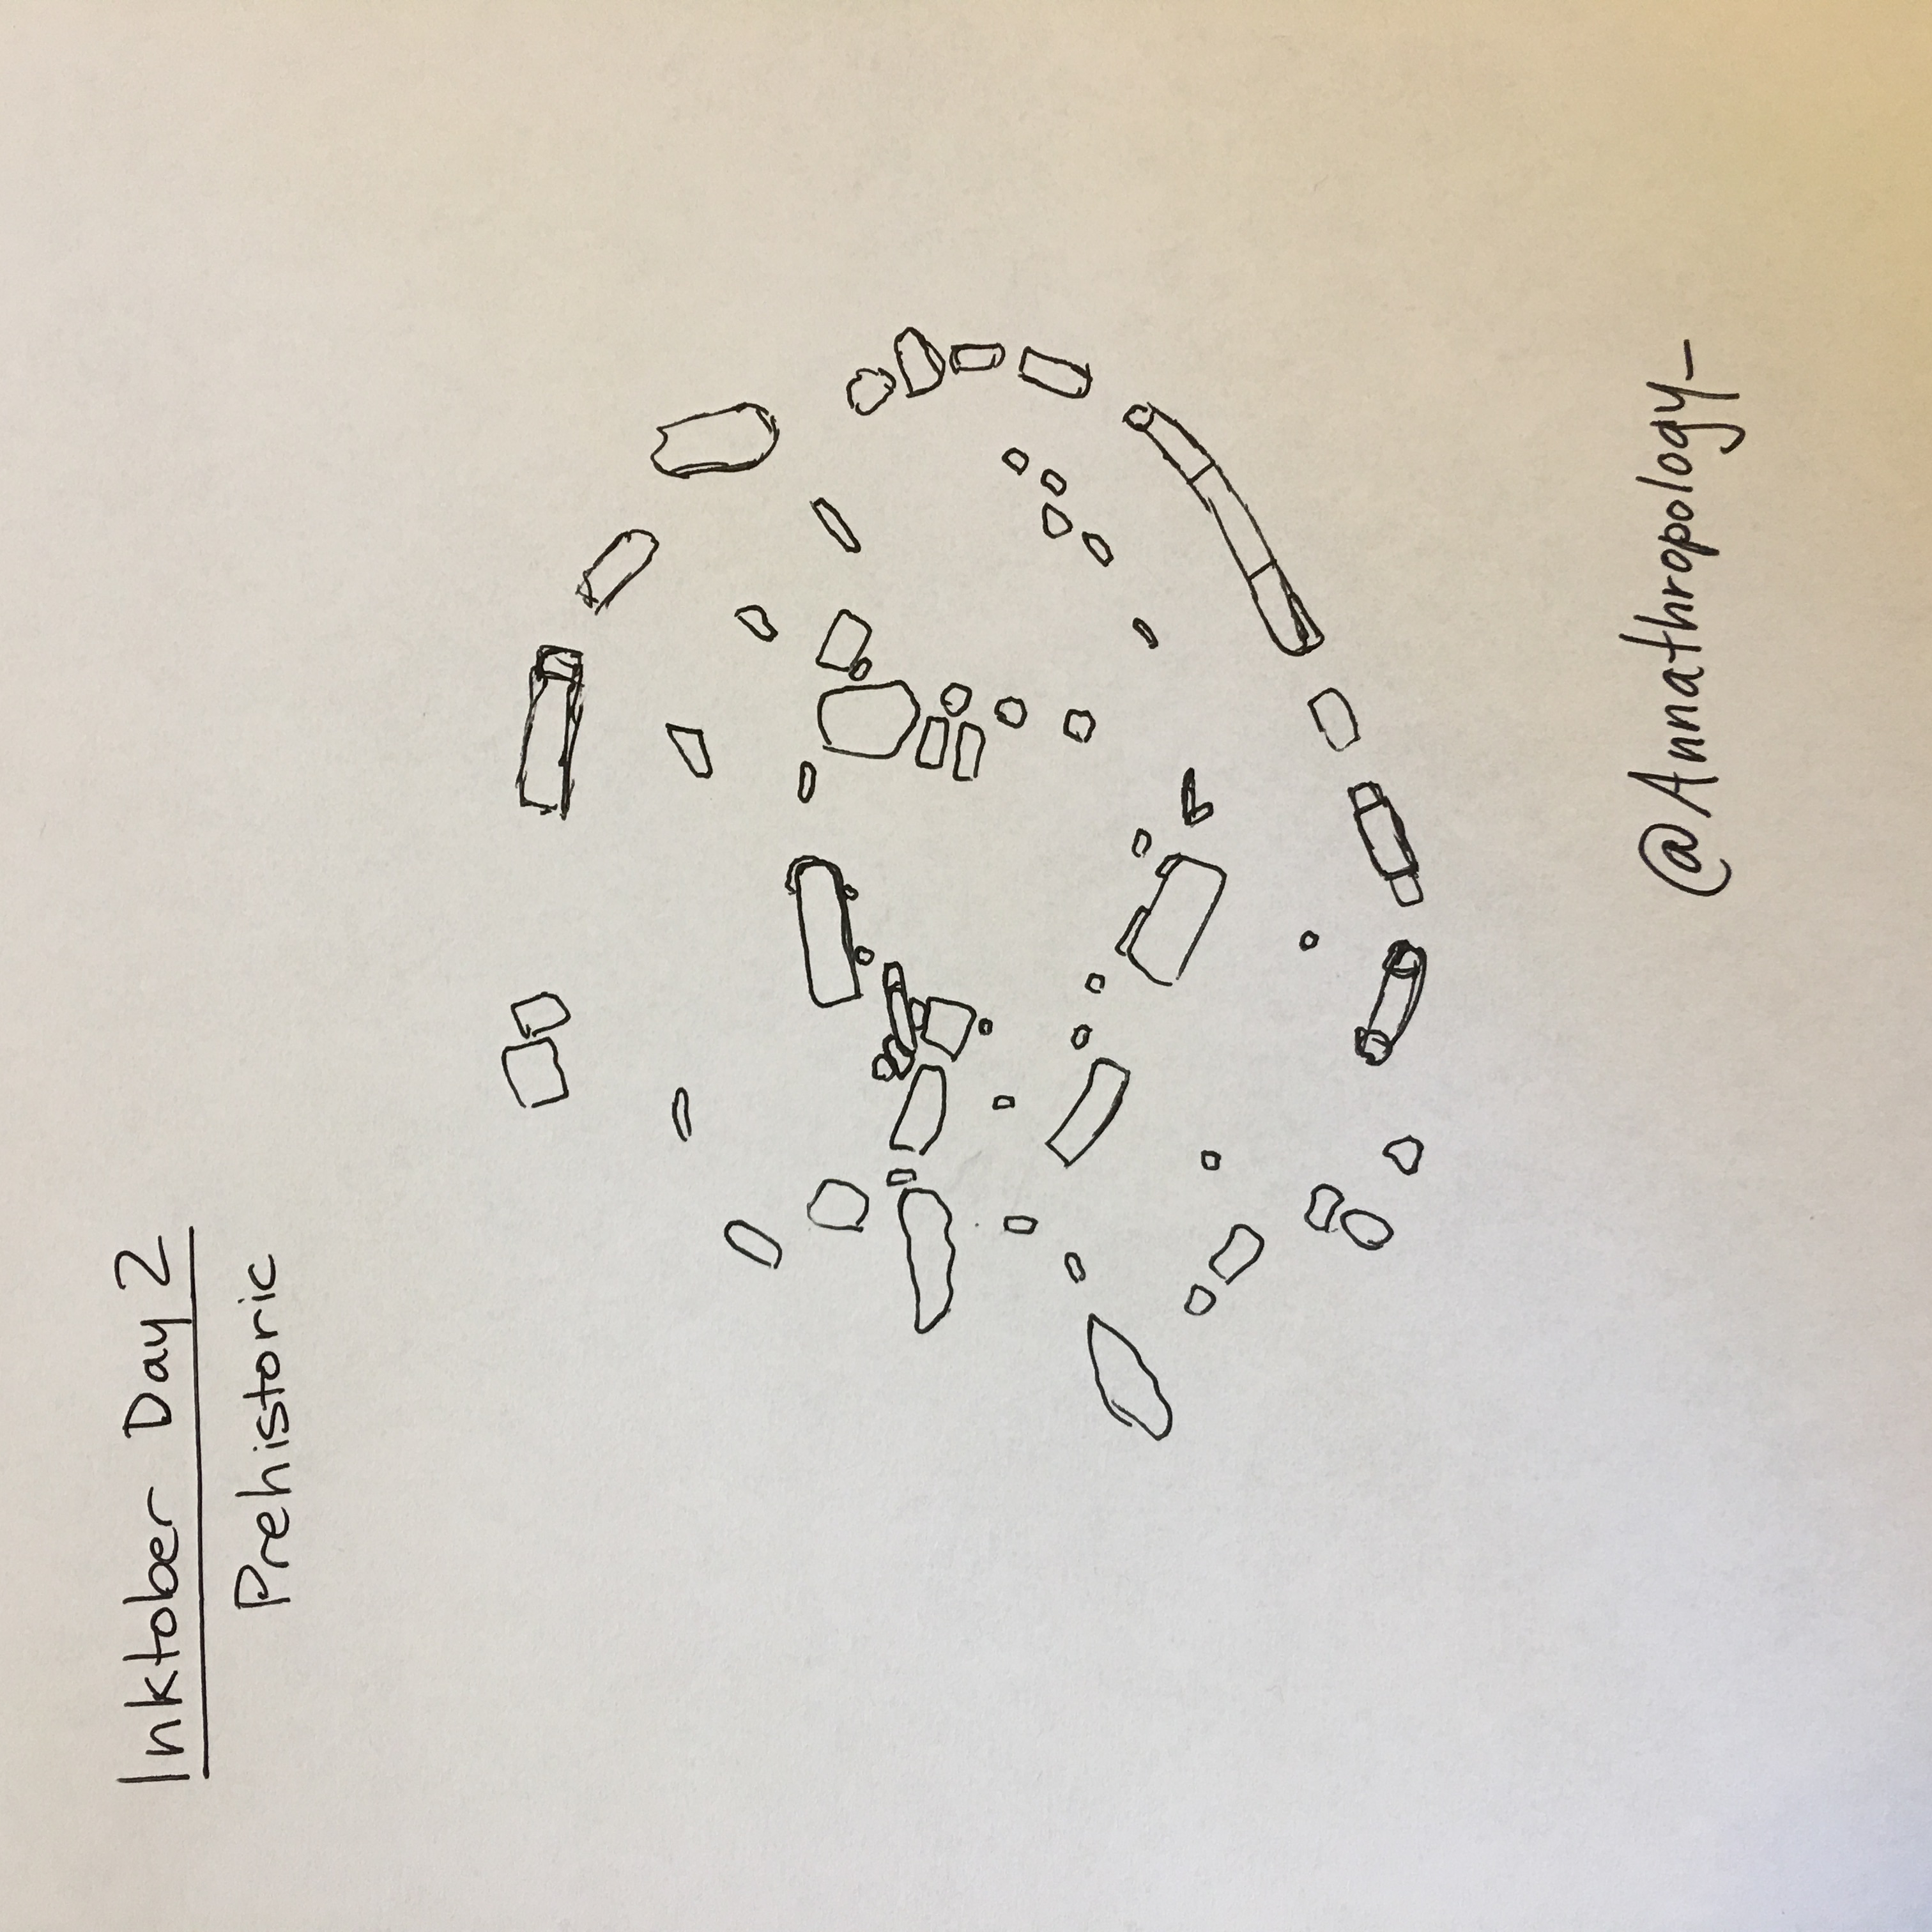 Inktober Day 2
Prehistoric
@Annathropology_